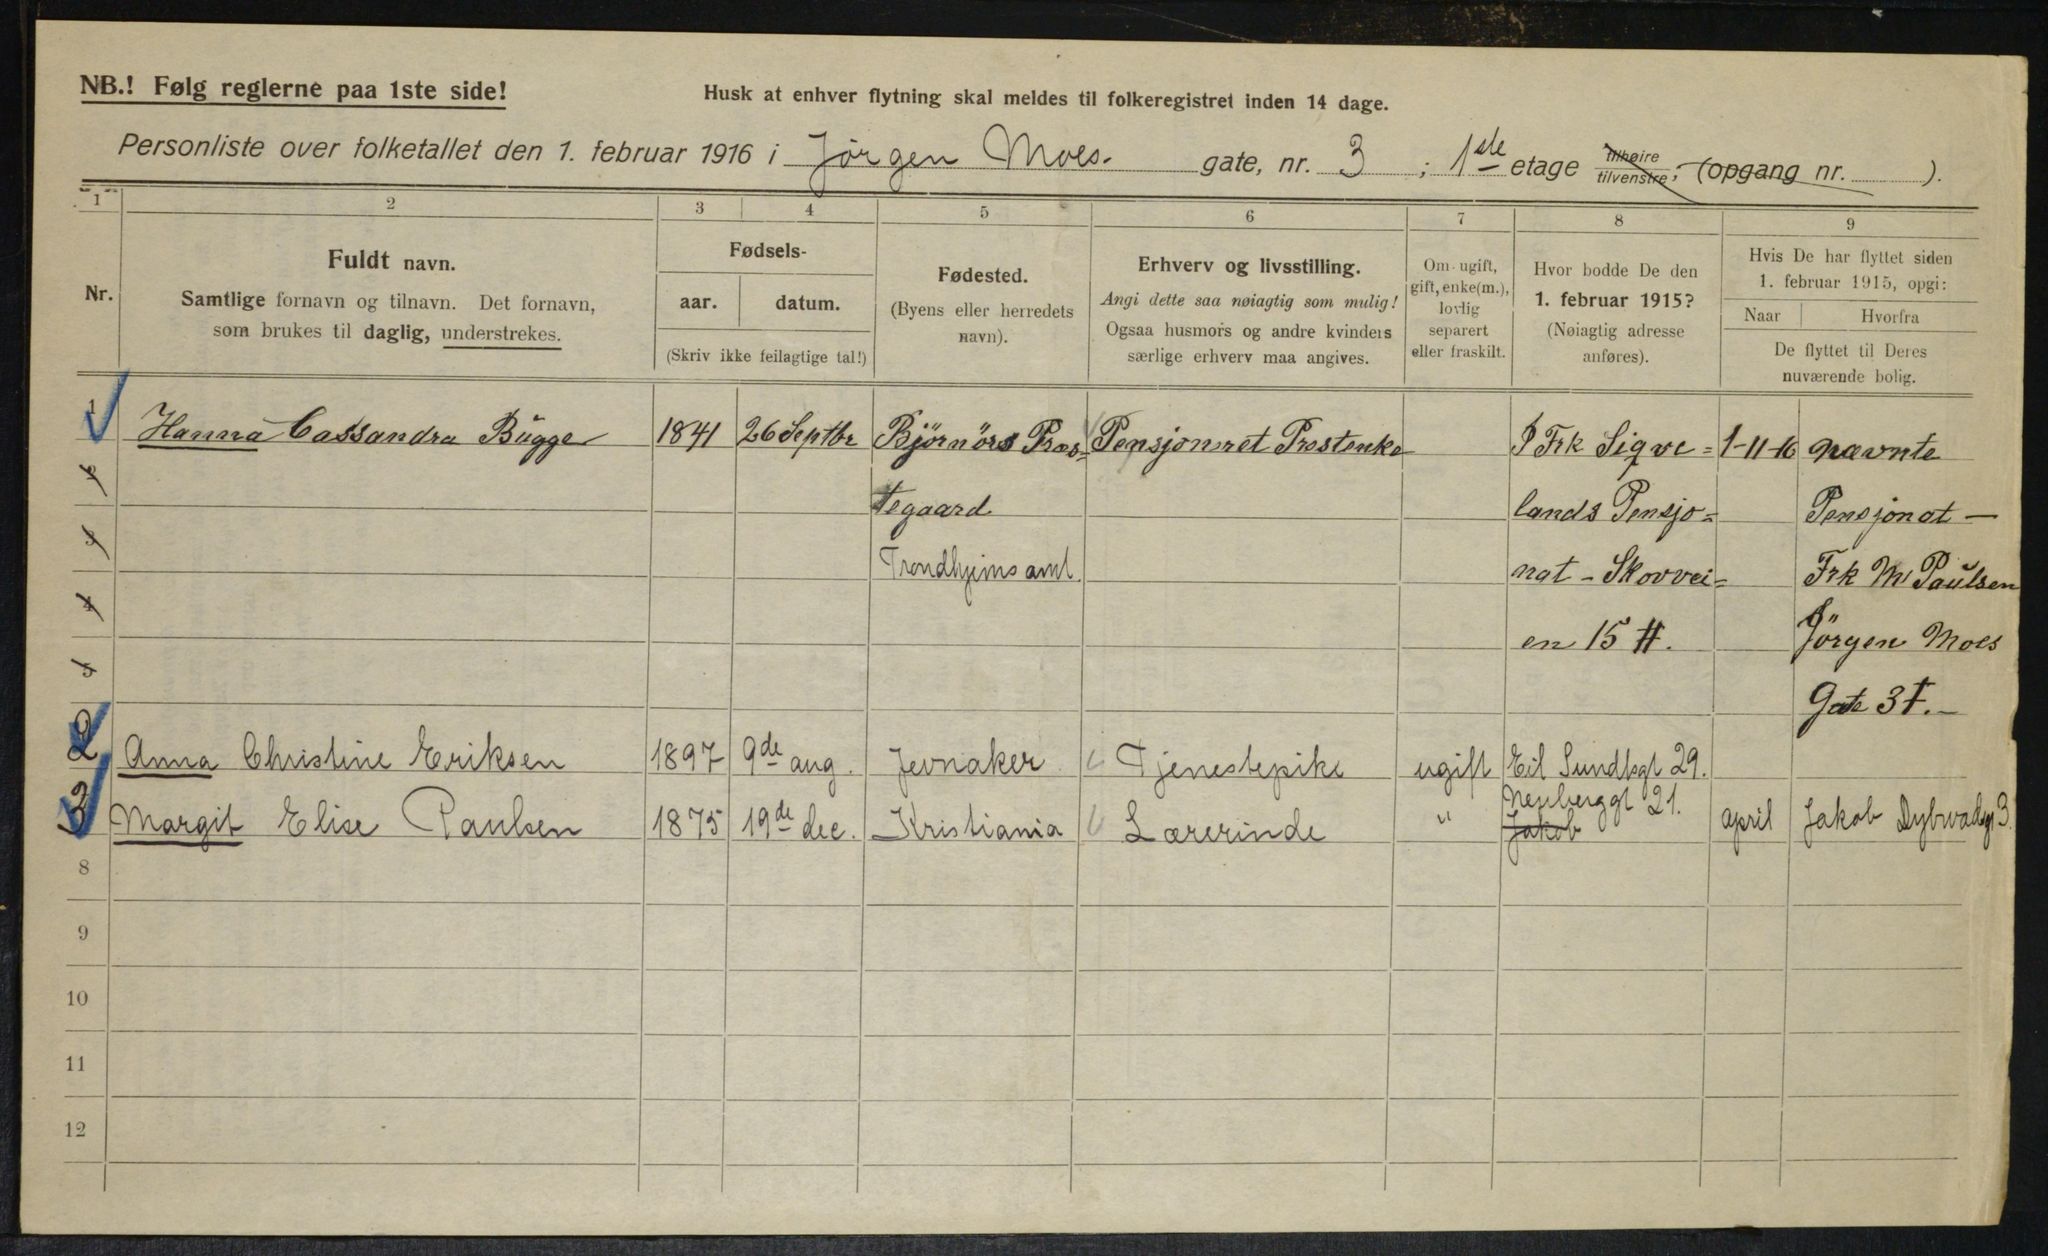 NB.! Følg reglerne paa 1ste side!
Husk at enhver flytning skal meldes til folkeregistret inden 14 dage.
Personliste over folketallet den 1. februar 1916 i Jørgen Moes. gate, nr. 3 ; 1ste etage tilhøire tilvenstre, (opgang nr. ).
1 2 3 4 5 6 7 8 9
Nr.
Fuldt navn.
Samtlige fornavn og tilnavn. Det fornavn,
som brukes til daglig, understrekes.
Fødsels-
aar. datum.
(Skriv ikke feilagtige tal!)
Fødested.
(Byens eller herredets
navn).
Erhverv og livsstilling.
Angi dette saa nøiagtig som mulig!
Ogsaa husmors og andre kvinders
særlige erhverv maa angives.
Om ugift,
gift, enke(m.),
lovlig
separert
eller fraskilt.
Hvor bodde De den
1. februar 1915?
(Nøiagtig adresse
anføres).
Hvis De har flyttet siden
1. februar 1915, opgi:
Naar Hvorfra
De flyttet til Deres
nuværende bolig.
1 Hanna Cassandra Bugge 1841 26 Septbr Bjørnörs Præs= Pensjoneret Prestenke Frk Sigve= 1-11-16 nævnte
tegaard lands Pensjo= Pensjonat —
3 Trondhjems amt. nat - Skovvei= Frk M Paulsen
4 en 15 II. Jörgen Moes
5 Gate 3 I.-
2 Anna Christine Eriksen 1897 9de aug. Jevnaker Tjenestepike ugift Eil Sundtsgt 29.
3 Margit Elise Paulsen 1875 19de dec. Kristiania Lærerinde " 21. Jakob april Jakob Dybwadsgt 3.
8
9
10
11
12